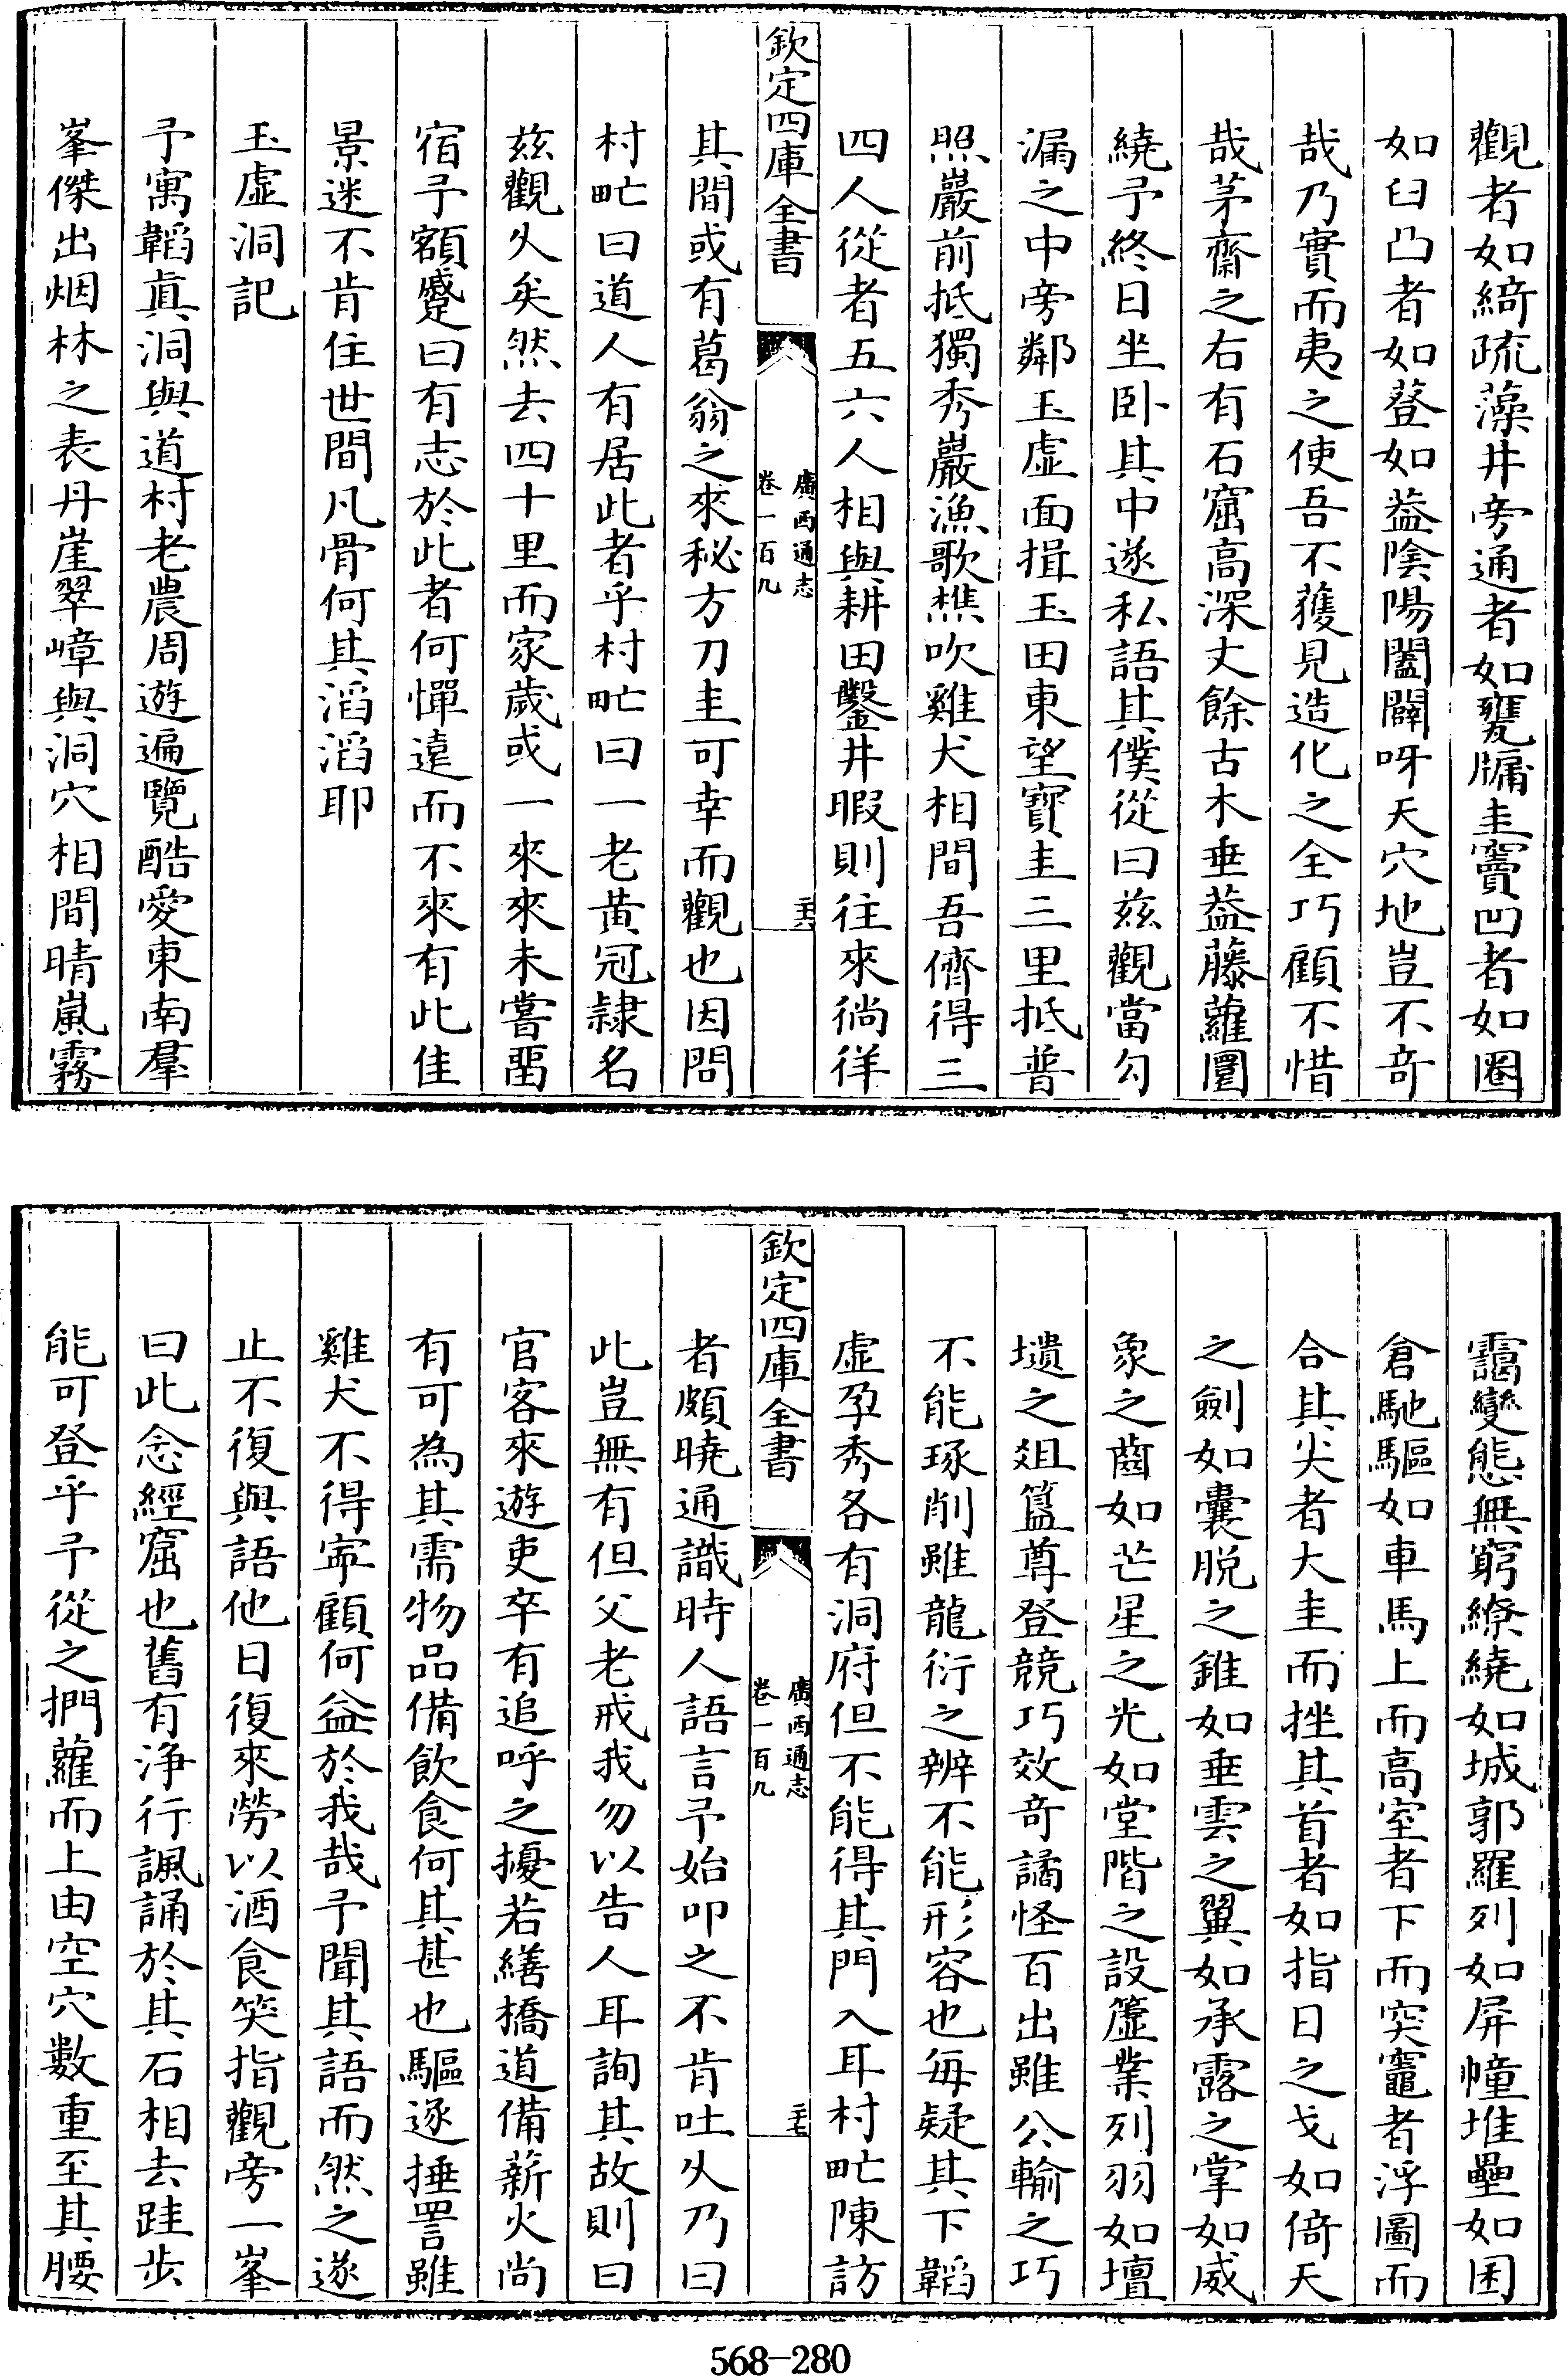 觀者如綺疏藻井旁通者如甕牖圭竇凹者如圈
如臼凸者如鐙如葢陰陽闔闢呀天穴地豈不奇
哉乃實而夷之使吾不獲見造化之全巧顧不惜
哉茅齋之右有石窟高深丈餘古木垂葢藤蘿圍
繞予終日坐卧其中遂私語其僕從曰兹觀當勾
漏之中旁鄰玉虛面揖玉田東望寳圭三里抵普
照巖前抵獨秀巖漁歌樵吹雞犬相間吾儕得三
四人從者五六人相與耕田鑿井暇則往來徜徉
欽定四庫全書
廣西通志
卷一百九
二十六
其間或有葛翁之來秘方刀圭可幸而觀也因問
村甿曰道人有居此者乎村甿曰一老黃冠隸名
兹觀乆矣然去四十里而家歲或一來來未嘗畱
宿予額蹙曰有志於此者何憚遠而不來有此佳
景迷不肯住世間凡骨何其滔滔耶
玉虛洞記
予寓韜眞洞與道村老農周遊遍覽酷愛東南羣
峯傑出烟林之表丹崖翠嶂與洞穴相間晴嵐霧
靄變態無窮繚繞如城郭羅列如屏幢堆壘如囷
倉馳驅如車馬上而高室者下而突竈者浮圖而
合其尖者大圭而挫其首者如指日之戈如倚天
之劍如囊脫之錐如垂雲之翼如承露之掌如威
象之齒如芒星之光如堂階之設簴業列羽如壇
壝之爼簋尊登競巧效奇譎怪百出雖公輸之巧
不能琢削雖龍衍之辨不能形容也每疑其下韜
虛孕秀各有洞府但不能得其門入耳村甿陳訪
欽定四庫全書
廣西通志
卷一百九
二十七
者頗曉通識時人語言予始叩之不肯吐乆乃曰
此豈無有但父老戒我勿以告人耳詢其故則曰
官客來遊吏卒有追呼之擾若繕橋道備薪火尚
有可為其需物品備飲食何其甚也驅逐捶詈雖
雞犬不得寧顧何益於我哉予聞其語而然之遂
止不復與語他日復來勞以酒食笑指觀旁一峯
曰此念經窟也舊有浄行諷誦於其石相去跬步
能可登乎予從之捫蘿而上由空穴數重至其腰
568-280